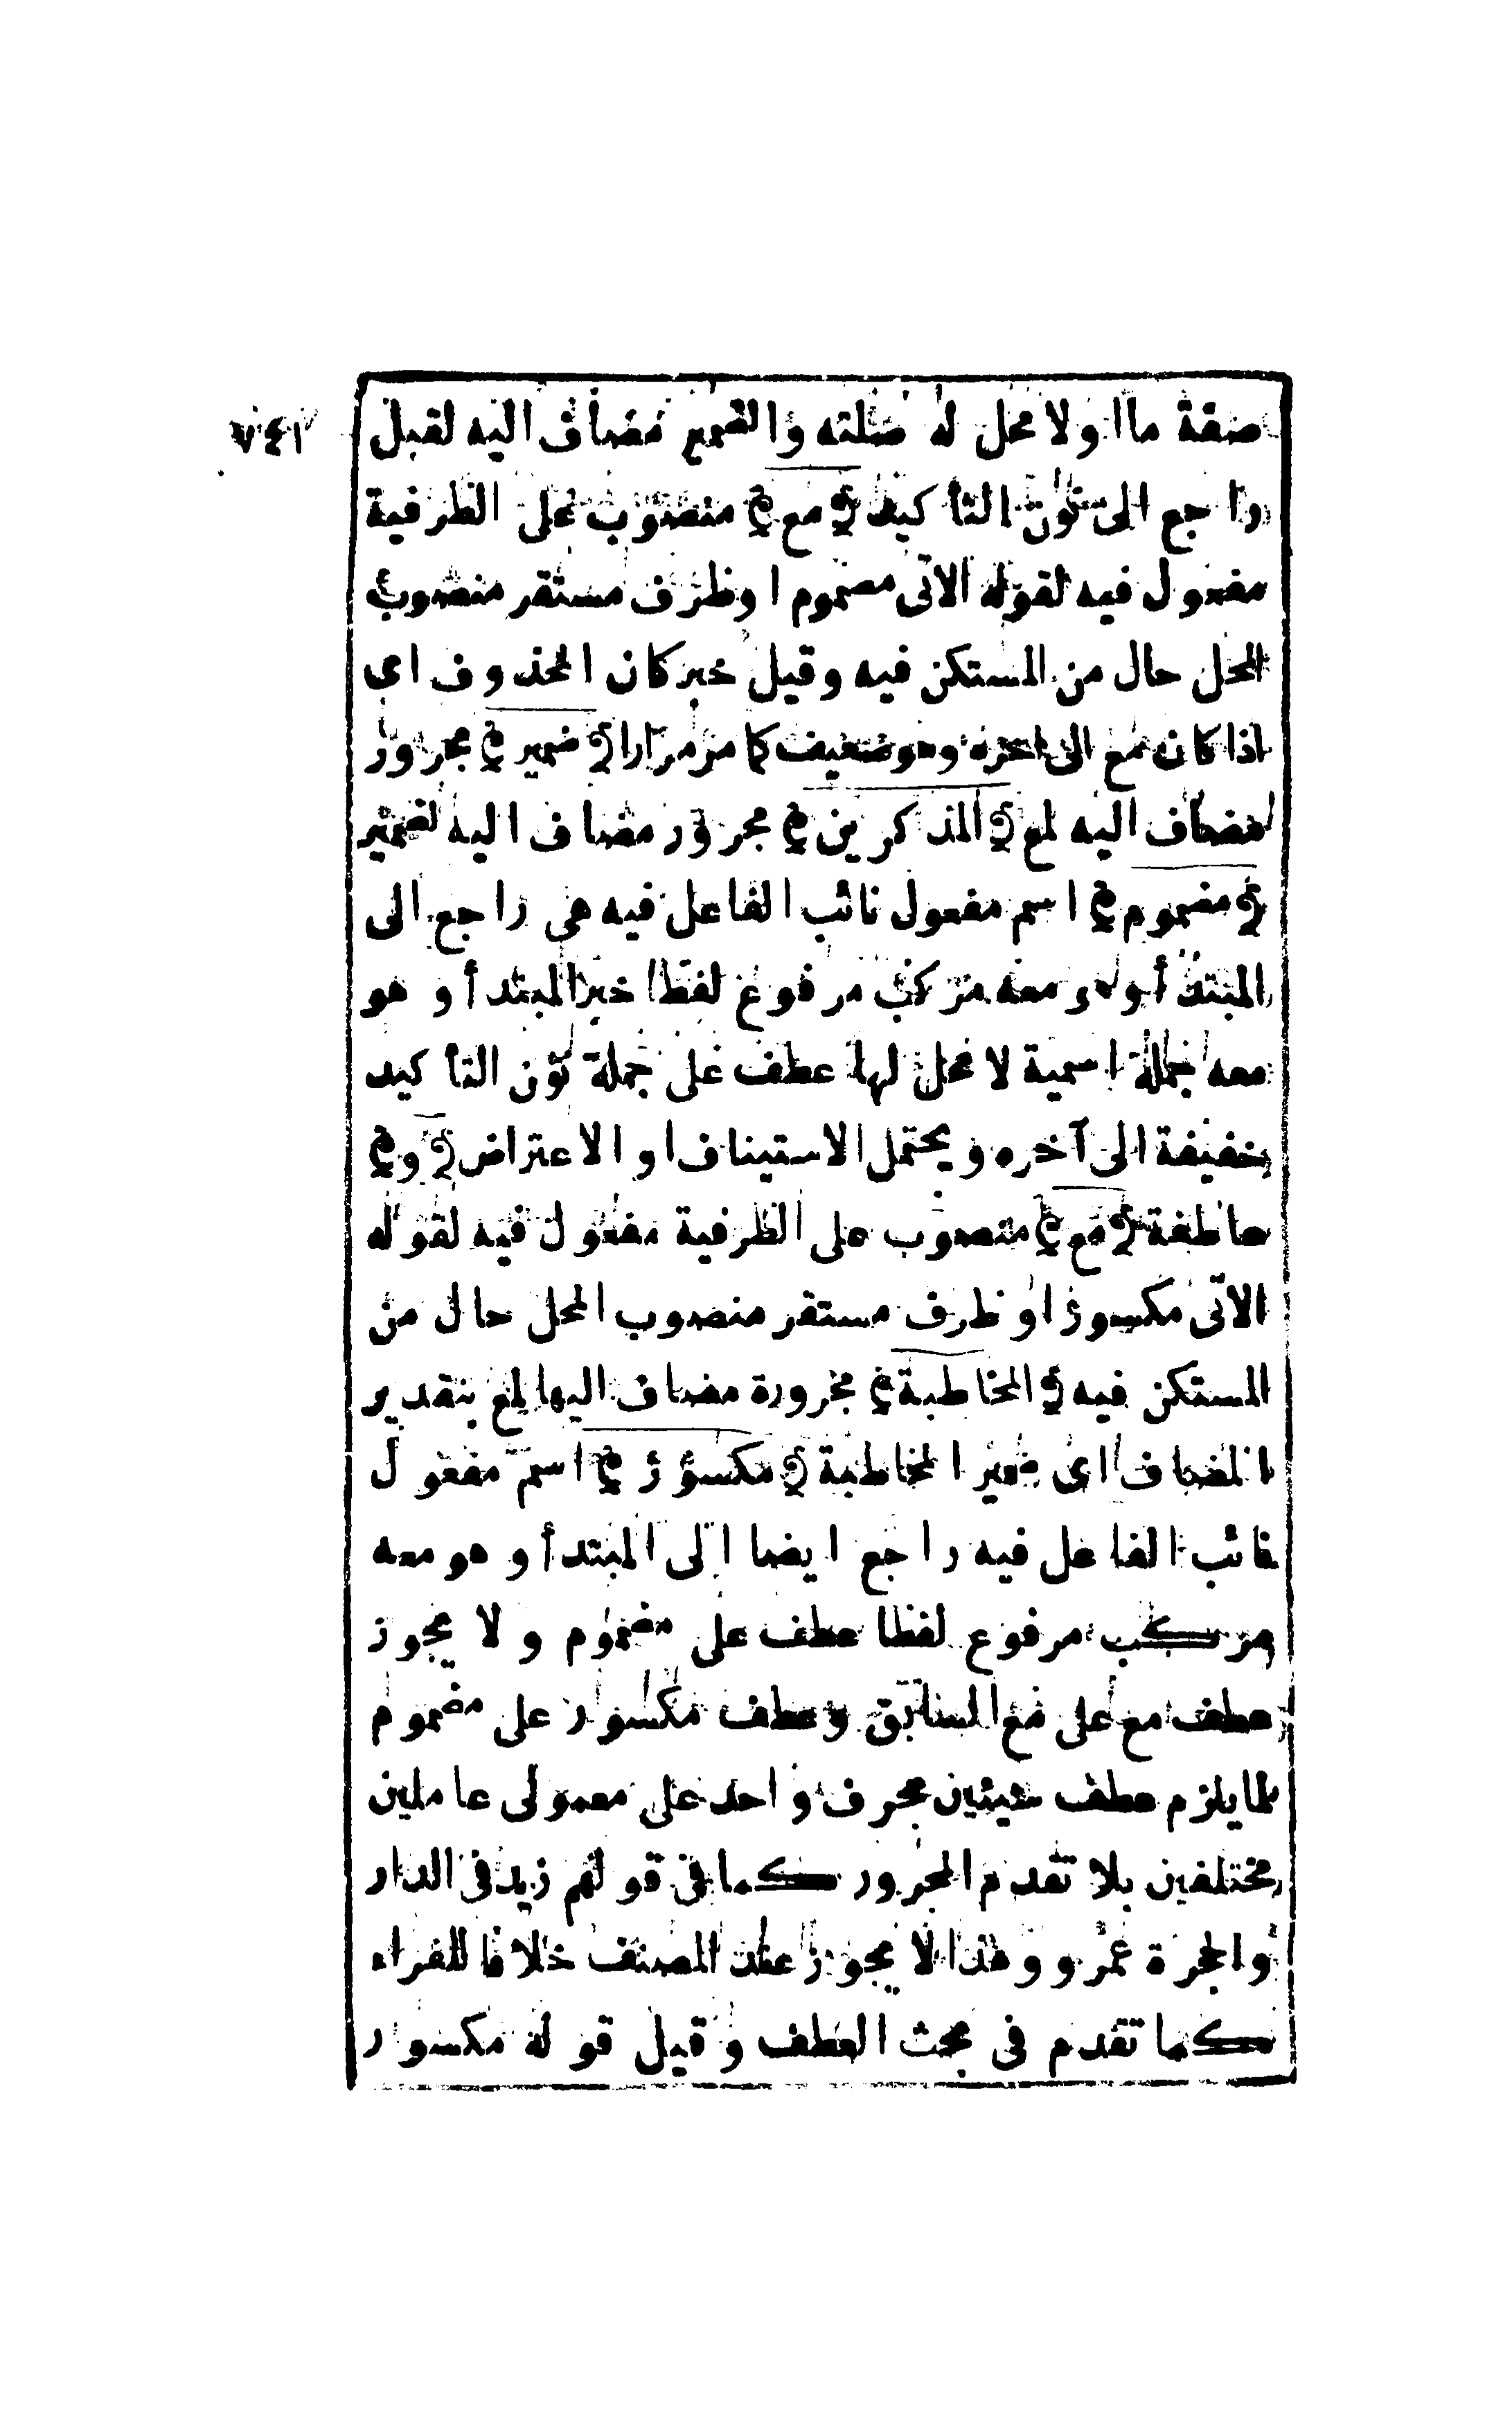 ٧٤١
صفة ما او لا محل له صلته والضمير مضاف اليه لقبل
راجع الى نون التأكيد ﴿ مع ﴾ منصوب على الظرفية
مفعول فيه لقوله الآتى مضموم او ظرف مستقر منصوب
المحل حال من المستكن فيه وقيل خبر كان المحذوف اى
اذا كان مع الى آخره وهو ضعيف كما مر مرارا ﴿ ضمير ﴾ مجرور
مضاف اليه لمع ﴿ المذكرين ﴾ مجرور مضاف اليه لضمير
﴿ مضموم ﴾ اسم مفعول نائب الفاعل فيه هى راجع الى
المبتدأ وهو معه مركب مرفوع لفظا خبر المبتدأ وهو
معه جملة اسمية لا محل لها عطف على جملة نون التأكيد
خفيفة الى آخره ويحتمل الاستيناف او الاعتراض ﴿ و ﴾
عاطفة ﴿ مع ﴾ منصوب على الظرفية مفعول فيه لقوله
الآتى مكسور او ظرف مستقر منصوب المحل حال من
المستكن فيه ﴿ المخاطبة ﴾ مجرورة مضاف اليها لمع بتقدير
المضاف اى ضمير المخاطبة ﴿ مكسور ﴾ اسم مفعول
نائب الفاعل فيه راجع ايضا الى المبتدأ وهو معه
مركب مرفوع لفظا عطف على مضموم ولا يجوز
عطف مع على مع السابق وعطف مكسور على مضموم
لما يلزم عطف شيئين بحرف واحد على معمولى عاملين
مختلفين بلا تقدم المجرور كما فى قولهم زيد فى الدار
والحجرة عمرو وهذا لا يجوز عند المصنف خلافا للفراء
كما تقدم فى بحث العطف وقيل قوله مكسور